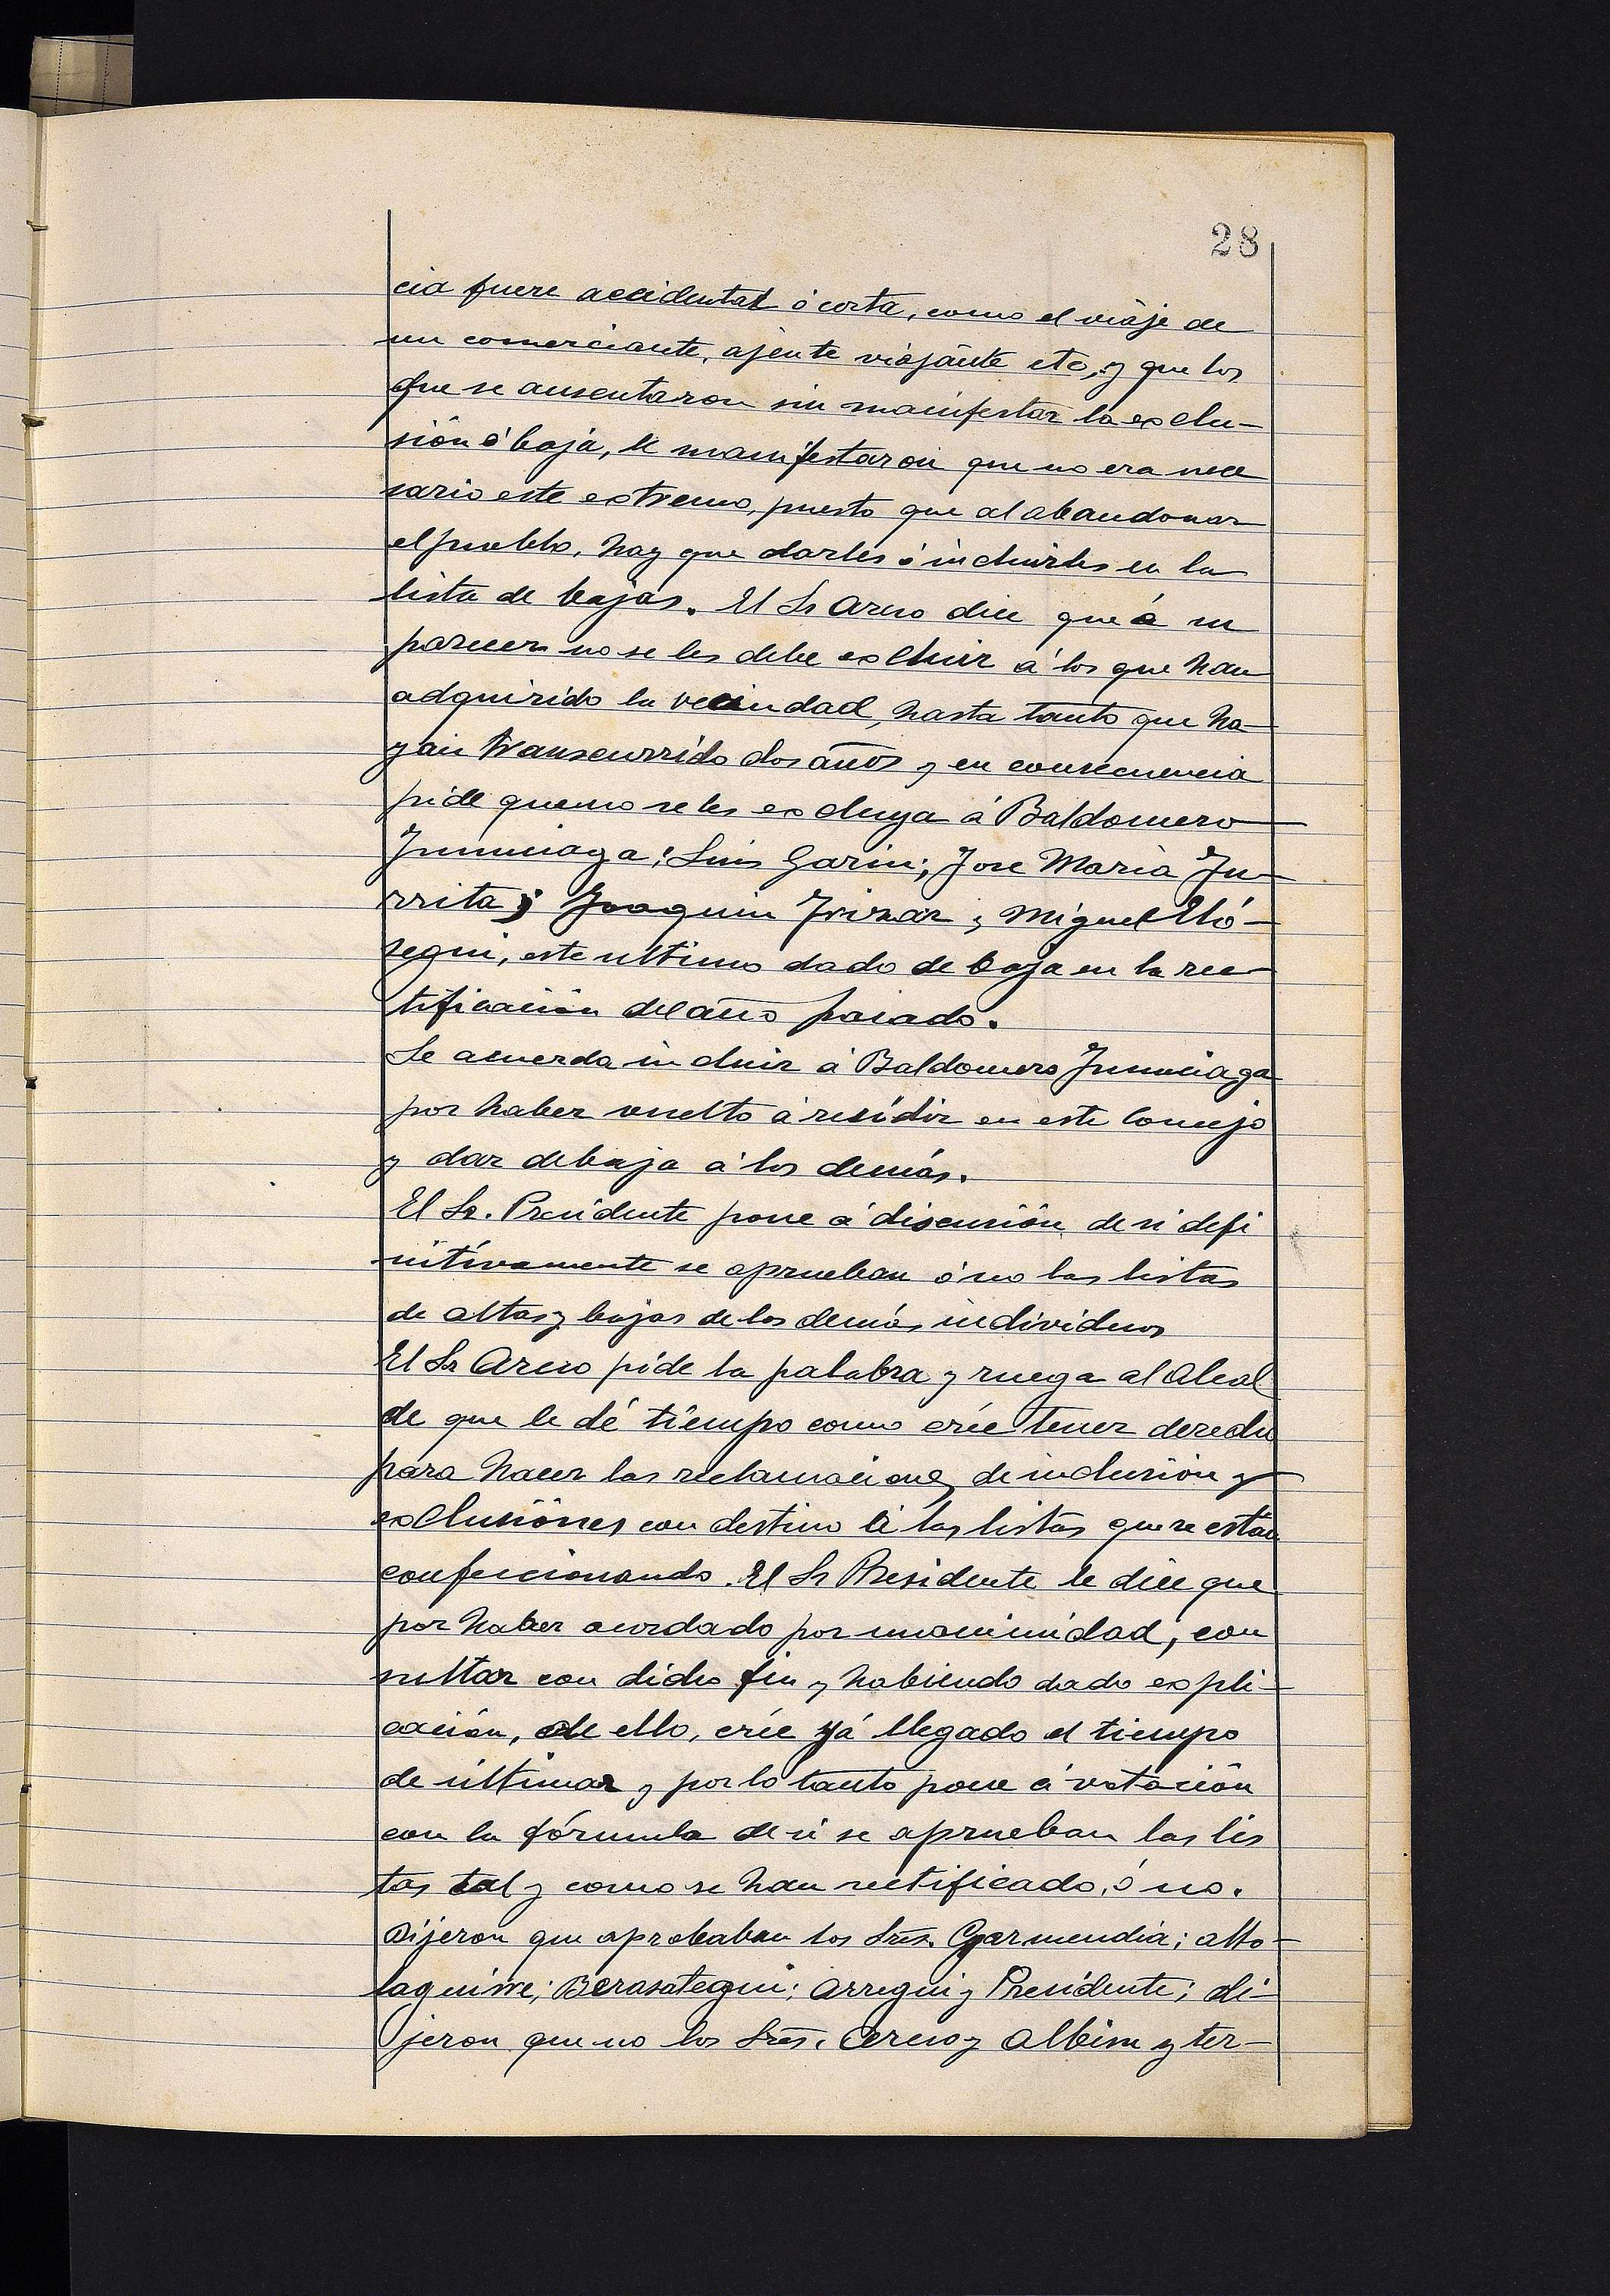 28
cia fuere accidental ó corta, como el viaje de
un comerciante, ajente viajante etc, y que los
que se ausentaron sin manifestar la exclu-
sión ó baja, le manifestaron que no era nece
sario este extremo, puesto que al abandonar
el pueblo, hay que darles ó incluirles en la
lista de bajas. El Sr Areso dice que á su
parecer no se les debe excluir á los que han
adquirido la vecindad, hasta tanto que ha-
yan transcurrido dos años y en consecuencia
pide que no se les excluya á Baldomero
Inunciaga; Luis Garin; Jose Maria Yu-
rrita; Joaquin Irizar y Miguel Eló-
segui, este ultimo dado de baja en la rec-
tificación del año pasado.
Se acuerda incluir á Baldomero Inunciaga
por haber vuelto á residir en este Concejo
y dar de baja á los demás.
El Sr. Presidente pone á discusión, de si defi
nitívamente se aprueban ó no las listas
de altas y bajas de los demás individuos
El Sr Areso pide la palabra y ruega al Alcal
de que le dé tiempo como crée tener derecho
para hacer las reclamaciones de inclusión y
exclusiónes con destino á las listas que se están
confeccionando. El Sr Presidente le dice que
por haber acordado por unanimidad, con
sultar con dicho fin y habiendo dado expli-
cación, de ello, crée yá llegado el tiempo
de últimar y por lo tanto pone á votación
con la fórmula de si se aprueban las lis
tas tal y como se han rectificado, ó no.
Dijeron que aprobaban los Sres. Garmendia; Alto-
laguirre; Berasategui; Arregui y Presidente; di-
jeron que no los Sres. Areso y Albisu y ter-